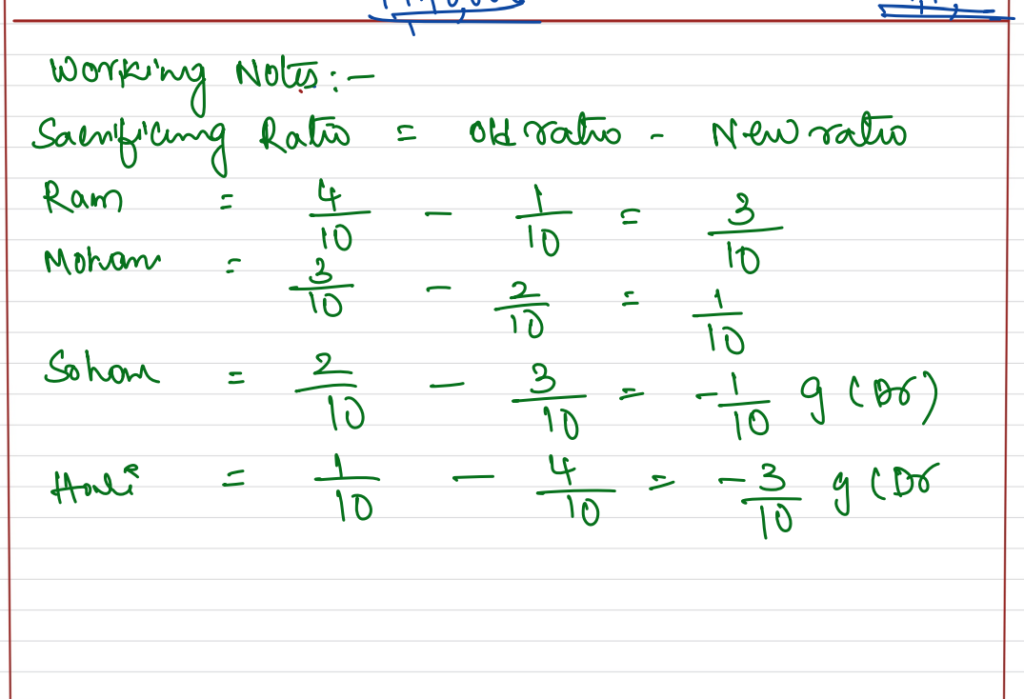 Working Notes:-
Sacrificing Ratio = Old ratio - New ratio
Ram = 4/10 - 1/10 = 3/10
Mohan = 3/10 - 2/10 = 1/10
Sohan = 2/10 - 3/10 = -1/10 g (Dr)
Hari = 1/10 - 4/10 = -3/10 g (Dr